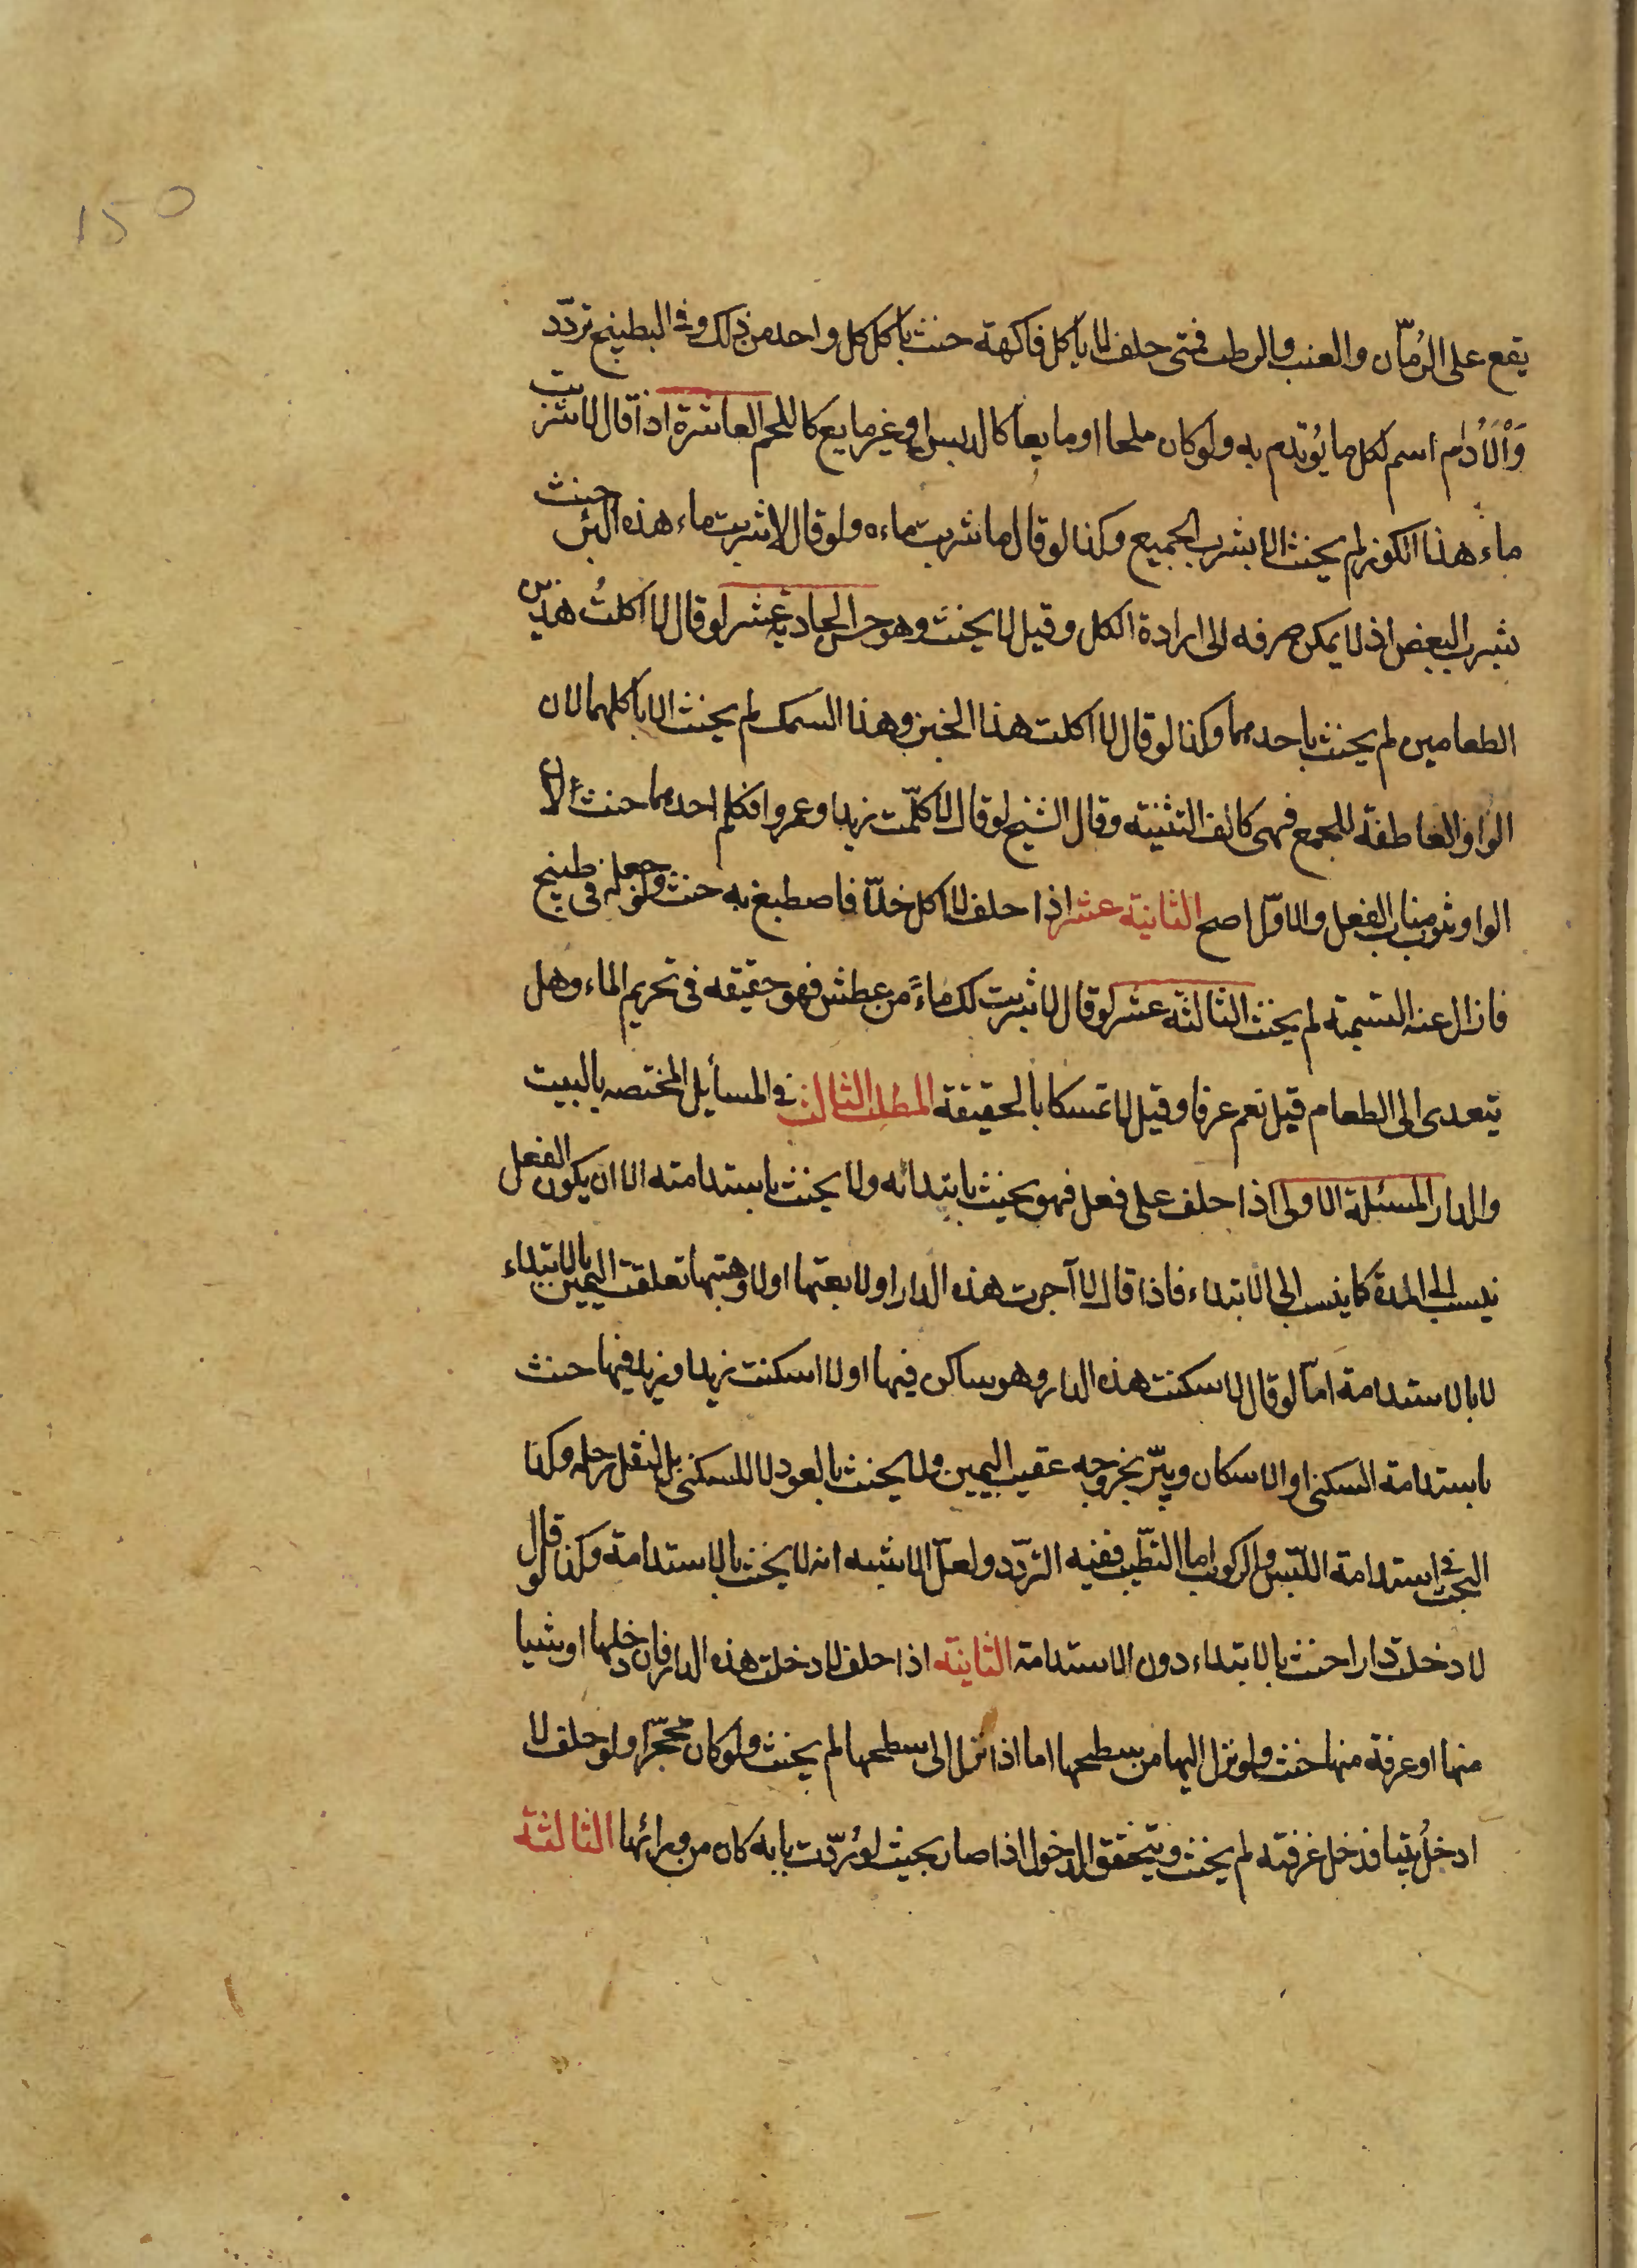 150
يقع على الرُمّان والعنب والرطب فمتى حلف لا ياكل فاكهة حنث باكل كل واحد من ذلك وفي البطيخ تردّد
وَالْاَدُام اسم لكل ما يُوتدم به ولو كان ملحا او مايعا كالدبس او غير مايع كاللحم العاشرة اذا قال لا شربت
ماء هذا الكوز لم يحنث الا بشرب الجميع وكذا لو قال ما شربت ماءه ولو قال لا شربت ماء هذه البئر حنث
بشرب البعض اذ لا يمكن صرفه الى ارادة الكل وقيل لا يحنث وهو حسن الحادية عشر لو قال لا اكلتُ هذين
الطعامين لم يحنث باحدهما وكذا لو قال لا اكلت هذا الخبز وهذا السمك لم يحنث الا باكلهما لان
الواو العاطفة للجمع فهى كالف التثنية وقال الشيخ لو قال لا كلّمت زيدا وعمروا فكلم احدهما حنث لان
الواو تنوب مناب الفعل والاوّل اصح الثانية عشر اذا حلف لا اكل خلّا فاصطبغ به حنث ولو جعله فى طبيخ
فازال عنه التسمية لم يحنث الثالثة عشر لو قال لا شربت لك ماءً من عطش فهو حقيقه فى تحريم الماء وهل
يتعدى الى الطعام قيل نعم عرفا وقيل لا تمسكا بالحقيقة المطلب الثالث في المسأيل المختصه بالبيت
والدار المسئلة الاولى اذا حلف على فعل فهو يحنث بابتدائه ولا يحنث باستدامته الا ان يكون الفعل
ينسب الى المدة كما ينسب الى الابتداء فاذا قال لا آجرت هذه الدار او لا بعتها او لا وهبتها تعلقت اليمين بالابتداء
لا بالاستدامة امّا لو قال لا سكنت هذه الدار وهو ساكن فيها او لا اسكنت زيدا وزيد فيها حنث
باستدامة السكنى او الاسكان ويبّر بخروجه عقيب اليمين ولا يحنث بالعود لا للسكنى بل لنقل رحله وكذا
البحث في استدامة اللبس والركوب اما التطّيب ففيه التردّد ولعلّ الاشبه انه لا يحنث بالاستدامة وكذا لو قال
لا دخلت دارا حنث بالابتداء دون الاستدامة الثانية اذا حلف لا دخلت هذه الدار فان دخلها او شيا
منها او غرفة منها حنث ولو نزل اليها من سطحها اما اذا نزل الى سطحها لم يحنث ولو كان محجّرا ولو حلف لا
ادخلُ بيتا فدخل غرفته لم يحنث ويتحقق الدخول اذا صار بحيث لو رُدّت بابه كان من ورائها الثالثة